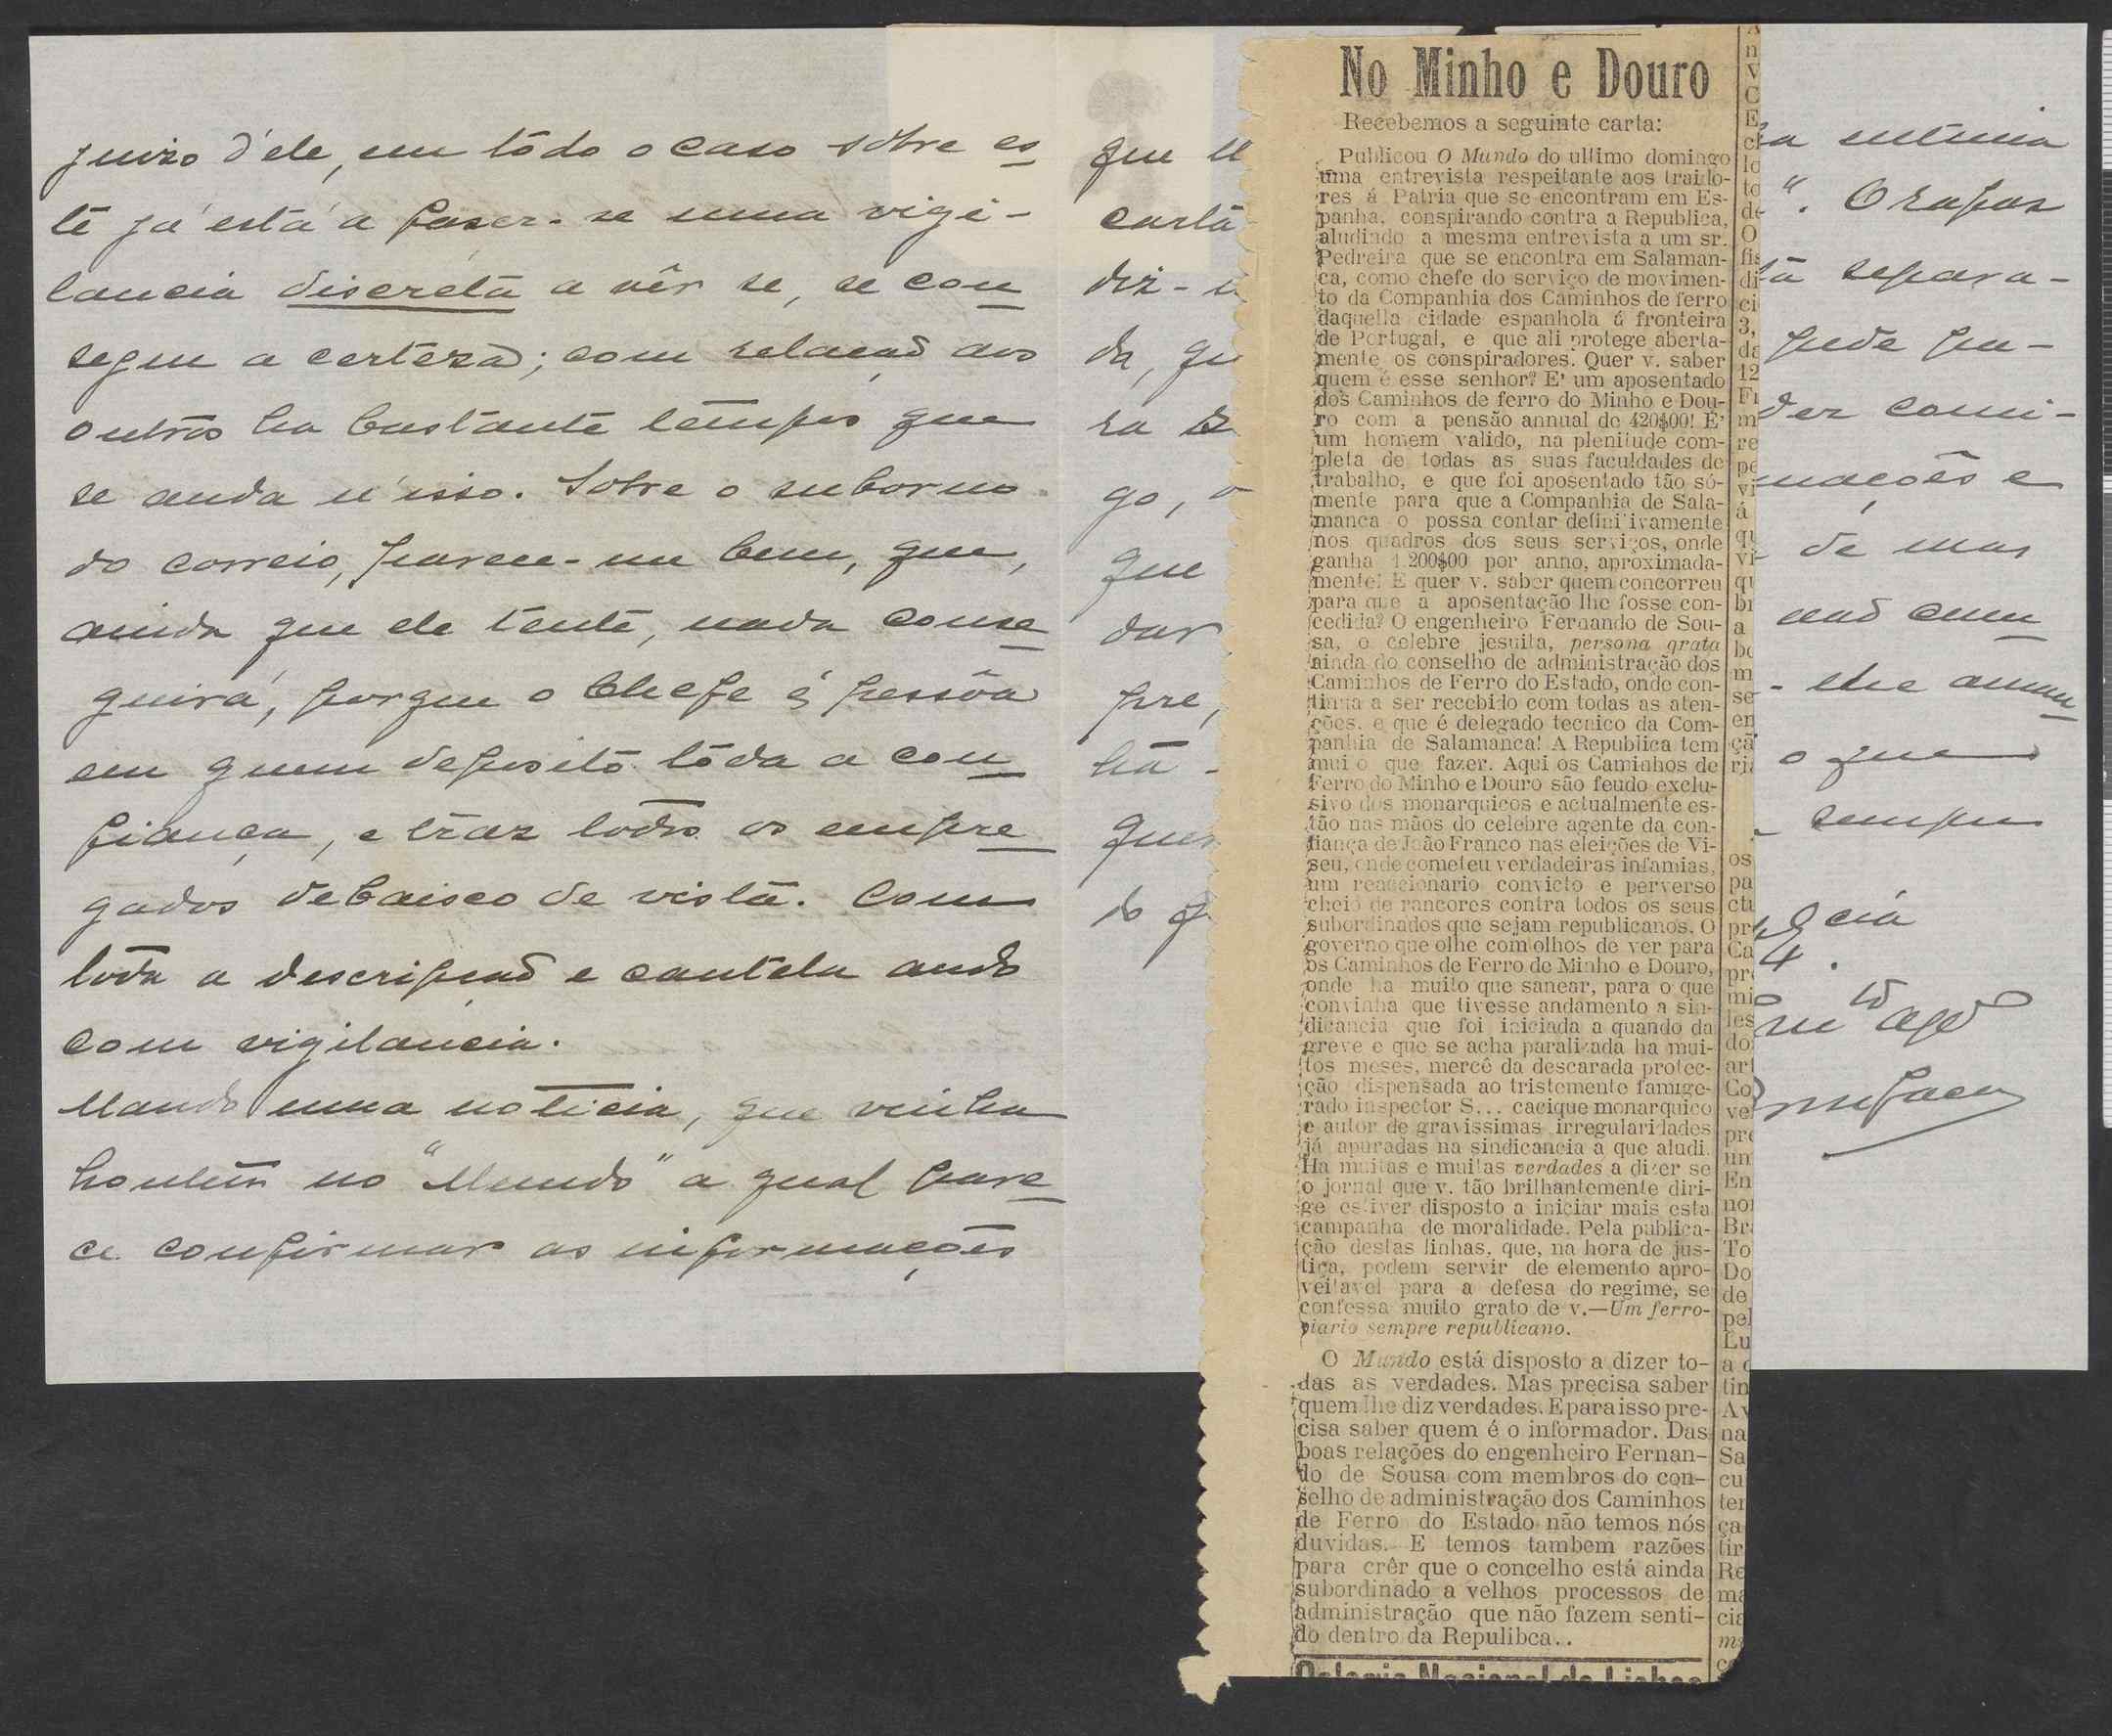 juizo d'ele, em tôdo o caso sobre es
te já está a faser-se uma vigi-
lancia discreta a vêr se, se con
segue a certêza; com relação aos
outros ha bastante tempos que
se anda n'isso. Sobre o suborno
do correio, parece-me bem, que,
ainda que ele tente, nada conse
guirá, porque o Chefe é pessôa
em quem deposito tôda a con
fiança, e traz todos os empre
gados debaixo de vista. Com
toda a descripção e cautela ando
com vigilancia.
Mando uma noticia, que vinha
hontem no "Mundo" a qual pare
ce confirmar as informações
que
carta
diz-
da, qu
ra
go, o
que
dar
pre,
ha-
quer
do
No Minho e Douro
Recebemos a seguinte carta:
Publicou O Mundo do ultimo domingo
uma entrevista respeitante aos traido-
res á Patria que se encontram em Es-
panha, conspirando contra a Republica,
aludindo a mesma entrevista a um sr.
Pedreira que se encontra em Salaman-
ca, como chefe do serviço de movimen-
to da Companhia dos Caminhos de ferro
daquella cidade espanhola á fronteira
de Portugal, e que ali protege aberta-
mente os conspiradores. Quer v. saber
quem é esse senhor? E' um aposentado
dos Caminhos de ferro do Minho e Dou-
ro com a pensão annual de 420$00! E'
um homem valido, na plenitude com-
pleta de todas as suas faculdades de
trabalho, e que foi aposentado tão só-
mente para que a Companhia de Sala-
manca o possa contar definitivamente
nos quadros dos seus serviços, onde
ganha 1.200$00 por anno, aproximada-
mente! E quer v. saber quem concorreu
para que a aposentação lhe fosse con-
cedida? O engenheiro Fernando de Sou-
sa, o celebre jesuita, persona grata
ainda do conselho de administração dos
Caminhos de Ferro do Estado, onde con-
tinua a ser recebido com todas as aten-
ções, e que é delegado tecnico da Com-
panhia de Salamanca! A Republica tem
muito que fazer. Aqui os Caminhos de
Ferro do Minho e Douro são feudo exclu-
sivo dos monarquicos e actualmente es-
tão nas mãos do celebre agente da con-
fiança de João Franco nas eleições de Vi-
seu, onde cometeu verdadeiras infamias,
um reaccionario convicto e perverso
cheio de rancores contra todos os seus
subordinados que sejam republicanos. O
governo que olhe com olhos de ver para
os Caminhos de Ferro de Minho e Douro,
onde ha muito que sanear, para o que
convinha que tivesse andamento a sin-
dicancia que foi iniciada a quando da
greve e que se acha paralizada ha mui-
tos meses, mercê da descarada protec-
ção dispensada ao tristemente famige-
rado inspector S... cacique monarquico
e autor de gravissimas irregularidades
já apuradas na sindicancia a que aludi.
Ha muitas e muitas verdades a dizer se
o jornal que v. tão brilhantemente diri-
ge estiver disposto a iniciar mais esta
campanha de moralidade. Pela publica-
ção destas linhas, que, na hora de jus-
tiça, podem servir de elemento apro-
veitavel para a defesa do regime, se
confessa muito grato de v.—Um ferro-
viario sempre republicano.
O Mundo está disposto a dizer to-
das as verdades. Mas precisa saber
quem lhe diz verdades. E para isso pre-
cisa saber quem é o informador. Das
boas relações do engenheiro Fernan-
do de Sousa com membros do con-
selho de administração dos Caminhos
de Ferro do Estado não temos nós
duvidas. E temos tambem razões
para crêr que o concelho está ainda
subordinado a velhos processos de
administração que não fazem senti-
do dentro da Repulibca..
". O rapas
separa-
pede pu-
der comi-
mações e
de mas
não cum
o que
sempre